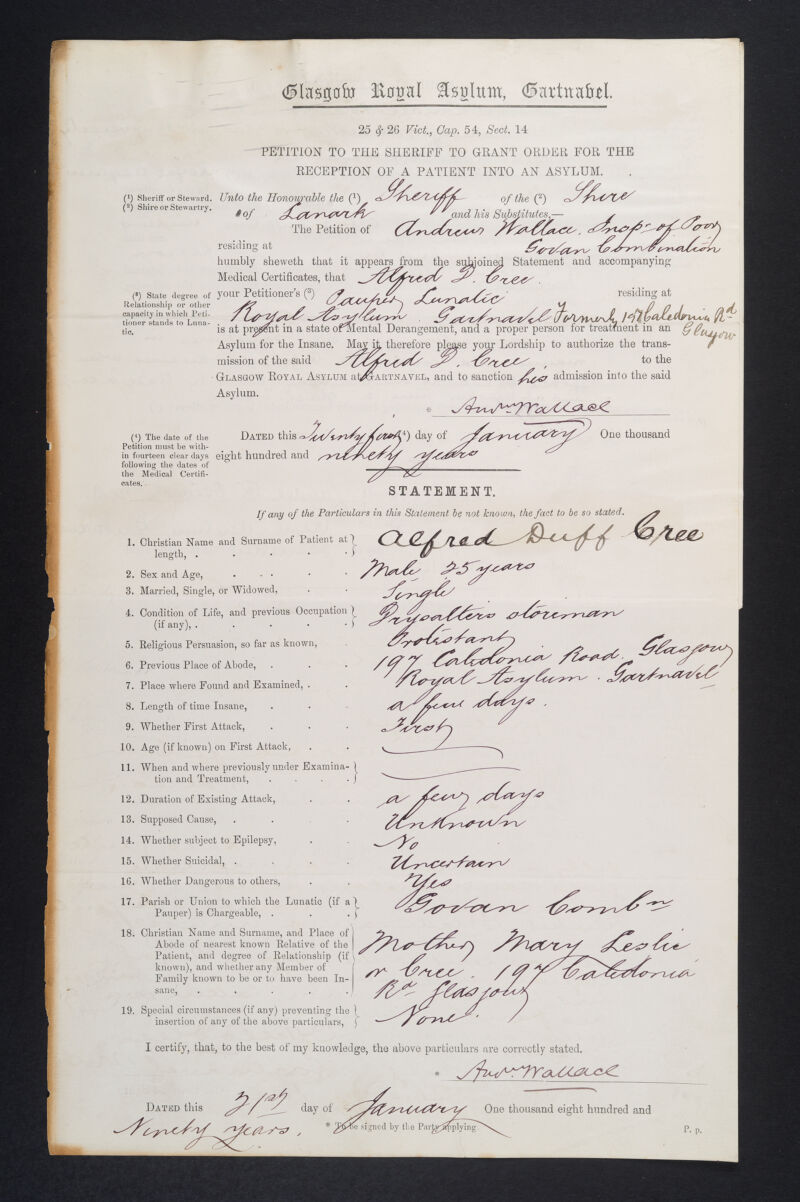 Glasgow Royal Asylum, Gartnavel.
25 & 26 Vict., Cap. 54, Sect. 14
PETITION TO THE SHERIFF TO GRANT ORDER FOR THE
RECEPTION OF A PATIENT INTO AN ASYLUM.
(1) Sheriff or Steward.
(2) Shire or Stewartry.
Unto the Honourable the (1) Sheriff of the (2) Shire
of Lanark and his Substitutes,—
The Petition of Andrew Wallace. Inspr of Poor
residing at Govan Combination
humbly sheweth that it appears from the subjoined Statement and accompanying
Medical Certificates, that Alfred D. Cree.
(3) State degree of
Relationship or other
capacity in which Peti-
tioner stands to Luna-
tic.
your Petitioner's (3) Pauper Lunatic residing at
Royal Asylum. Gartnavel Formerly 197 Caledonia Rd
Glasgow
is at present in a state of Mental Derangement, and a proper person for treatment in an
Asylum for the Insane. May it therefore please your Lordship to authorize the trans-
mission of the said Alfred D. Cree to the
GLASGOW ROYAL ASYLUM at GARTNAVEL, and to sanction his admission into the said
Asylum.
* Andw Wallace
(4) The date of the
Petition must be with-
in fourteen clear days
following the dates of
the Medical Certifi-
cates.
DATED this Twenty first (4) day of January One thousand
eight hundred and ninety years
STATEMENT.
If any of the Particulars in this Statement be not known, the fact to be so stated.
1. Christian Name and Surname of Patient at
length, . . . . . Alfred Duff Cree
2. Sex and Age, . . . . Male 25 years
3. Married, Single, or Widowed, . . Single
4. Condition of Life, and previous Occupation
(if any), . . . . . Drysalters storeman
5. Religious Persuasion, so far as known, Protestant
6. Previous Place of Abode, . . . 197 Caledonia Road. Glasgow
7. Place where Found and Examined, . . Royal Asylum. Gartnavel
8. Length of time Insane, . . . a few days.
9. Whether First Attack, . . . First
10. Age (if known) on First Attack, . .
11. When and where previously under Examina-
tion and Treatment, . . . .
12. Duration of Existing Attack, . . a few days
13. Supposed Cause, . . . . Unknown
14. Whether subject to Epilepsy, . . No
15. Whether Suicidal, . . . . Uncertain
16. Whether Dangerous to others, . . Yes
17. Parish or Union to which the Lunatic (if a
Pauper) is Chargeable, . . . Govan Combn
18. Christian Name and Surname, and Place of
Abode of nearest known Relative of the
Patient, and degree of Relationship (if
known), and whether any Member of
Family known to be or to have been In-
sane, . . . . .
Mother Mary Leslie
or Cree. 197 Caledonia
Rd Glasgow
19. Special circumstances (if any) preventing the
insertion of any of the above particulars, None.
I certify, that, to the best of my knowledge, the above particulars are correctly stated.
* Andw Wallace
DATED this 21st day of January One thousand eight hundred and
Ninety years. * To be signed by the Party applying P. p.